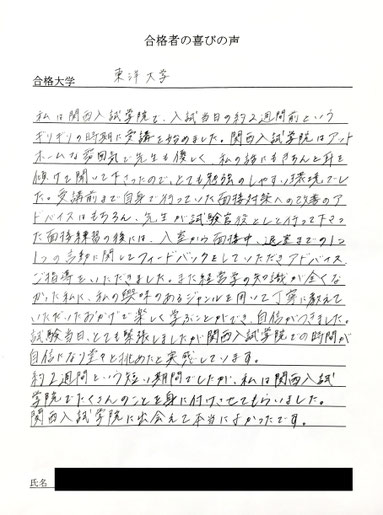 合格者の喜びの声
合格大学 東洋大学
私は関西入試学院で、入試当日の約2週間前という
ギリギリの時期に受講を始めました。関西入試学院はアット
ホームな雰囲気で先生も優しく、私の話にもきちんと耳を
傾けを聞いて下さったので、とても勉強のしやすい環境でし
た。受講前まで自身で行っていた面接対策への改善のア
ドバイスはもちろん、先生が試験官役として行って下さっ
た面接練習の後には、入室から面接中、退室までの1つ
1つの言動に関してフィードバックをしていただきアドバイス、
ご指導をいただきました。また経営学の知識が全くな
かった私に、私の興味のあるジャンルを用いて丁寧に教えて
いただいたおかげで楽しく学ぶことができ、自信がつきました。
試験当日、とても緊張しましたが関西入試学院での時間が
自信になり堂々と挑めたと実感しています。
約2週間という短い期間でしたが、私は関西入試
学院でたくさんのことを身に付けさせてもらいました。
関西入試学院に出会えて本当によかったです。
氏名